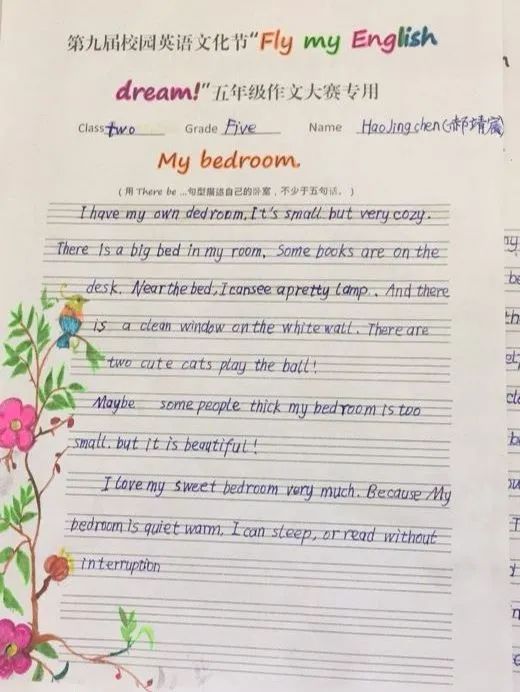 第九届校园英语文化节“Fly my English
dream!”五年级作文大赛专用
Class two Grade Five Name Hao Jing chen (郝靖宸)
My bedroom.
(用 There be ...句型描述自己的卧室，不少于五句话。)
I have my own dedroom, It's small but very cozy.
There is a big bed in my room, Some books are on the
desk. Near the bed, I can see a pretty lamp.. And there
is a clean window on the white wall. There are
two cute cats play the ball!
Maybe some people thick my bedroom is too
small. but it is beautiful!
I love my sweet bedroom very much. Because My
bedroom is quiet warm, I can sleep, or read without
interruption